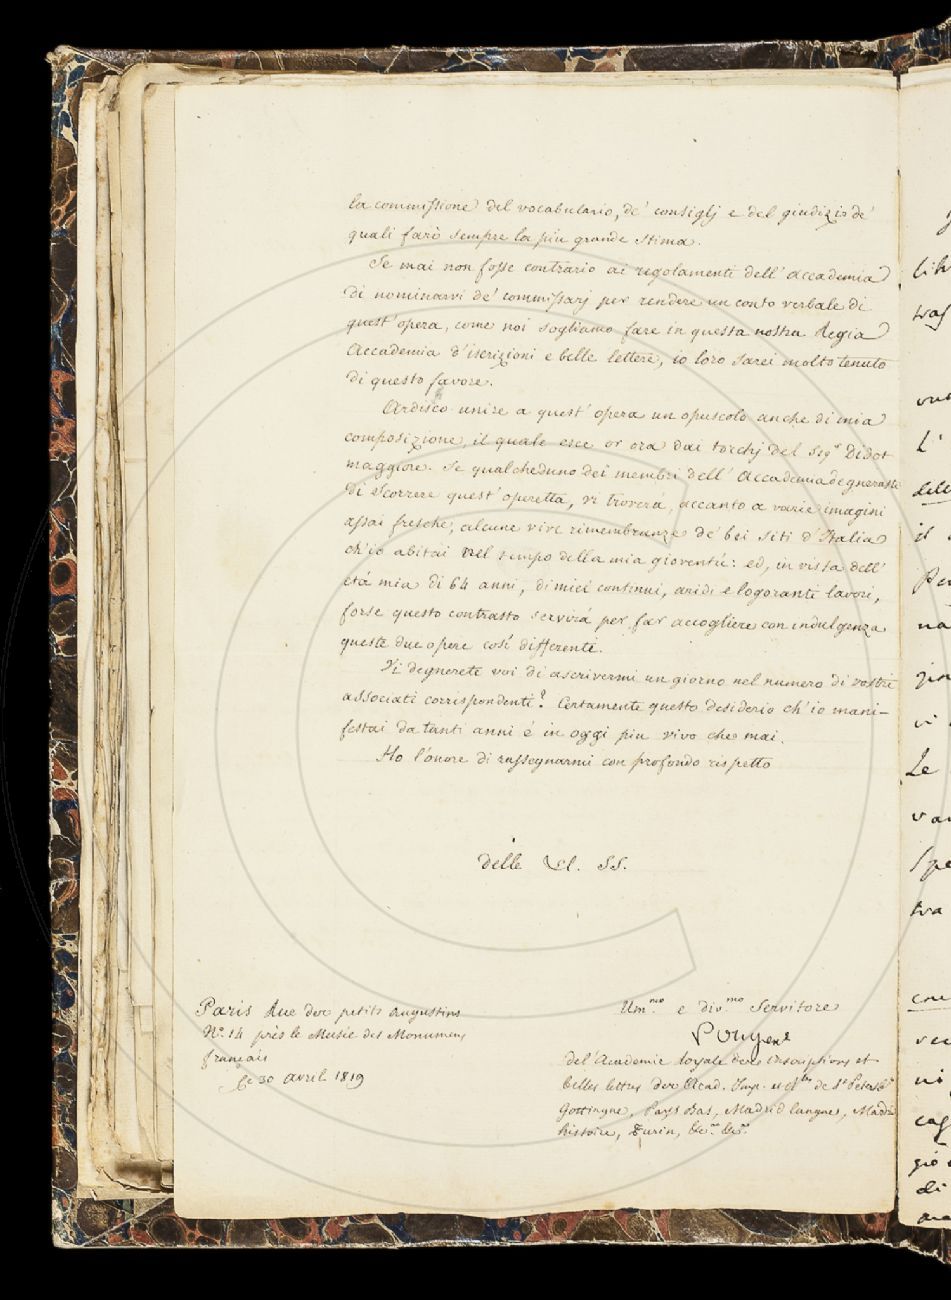 la commissione del vocabulario, de' consiglj e del giudizio de'
quali farò sempre la più grande stima.
Se mai non fosse contrario ai regolamenti dell' accademia
di nominarvi de' commissarj per rendere un conto verbale di
quest' opera, come noi sogliamo fare in questa nostra Regia
Accademia d'iscrizioni e belle lettere, io loro sarei molto tenuto
di questo favore.
Ardisco unire a quest' opera un opuscolo anche di mia
composizione, il quale esce or ora dai torchj del Sigr Didot
maggiore. Se qualcheduno dei membri dell' Accademia degnerassi
di scorrere quest' operetta, vi troverá, accanto a varie imagini
assai fresche, alcune vive rimembranze de' bei siti d'Italia
ch'io abitai nel tempo della mia gioventú: ed, in vista dell'
etá mia di 64 anni, di miei continui, aridi e logoranti lavori,
forse questo contrasto servirá per far accogliere con indulgenza
queste due opere cosí differenti.
Vi degnerete voi di ascrivermi un giorno nel numero di vostri
associati corrispondenti? Certamente questo desiderio ch' io mani-
festai da tanti anni è in oggi piu vivo che mai.
Ho l'onore di rassegnarmi con profondo rispetto
delle Cl. SS.
Paris Rue des petits augustins
No. 14 près le Musée des Monumens
français
le 30 avril 1819
Um.mo e div.mo Servitore
Pougens
de l'Academie royale des inscriptions et
belles lettres des Acad. Imp. et de St Petersb.
Gottingue, Pays Bas, Madrid langue, Madrid
histoire, Turin, &c. &c.